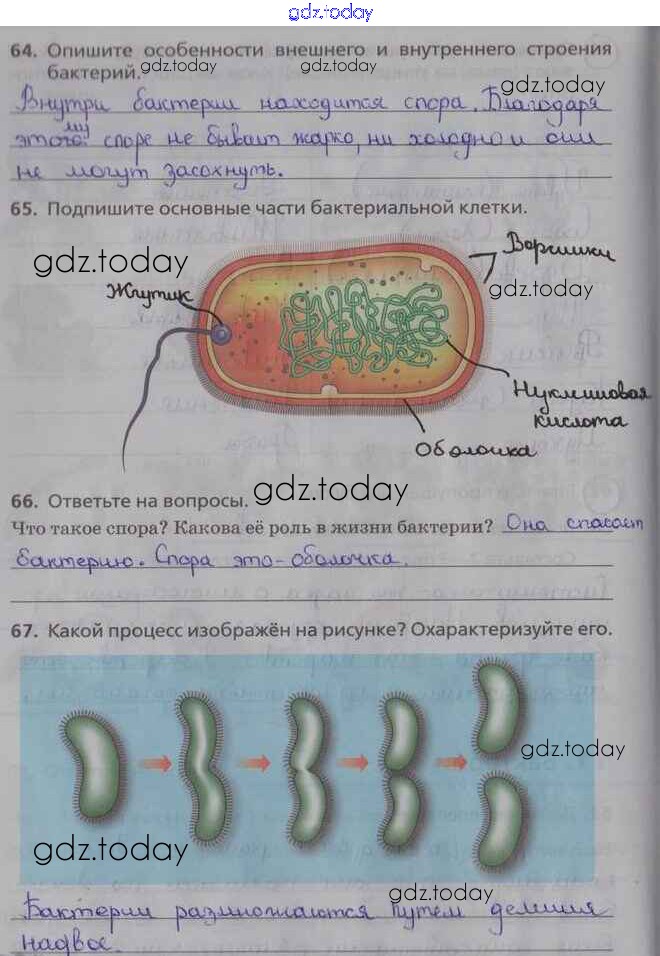 gdz.today
64. Опишите особенности внешнего и внутреннего строения
бактерий.
gdz.today
gdz.today
gdz.today
Внутри бактерии находится спора. Благодаря
этому споре не бывает жарко, ни холодно и они
не могут засохнуть.
65. Подпишите основные части бактериальной клетки.
gdz.today
Ворсинки
gdz.today
Жгутик
Нуклеиновая
кислота
Оболочка
66. Ответьте на вопросы.
gdz.today
Что такое спора? Какова её роль в жизни бактерии? Она спасает
бактерию. Спора это - оболочка.
67. Какой процесс изображён на рисунке? Охарактеризуйте его.
gdz.today
gdz.today
gdz.today
Бактерии размножаются путём деления
надвое.